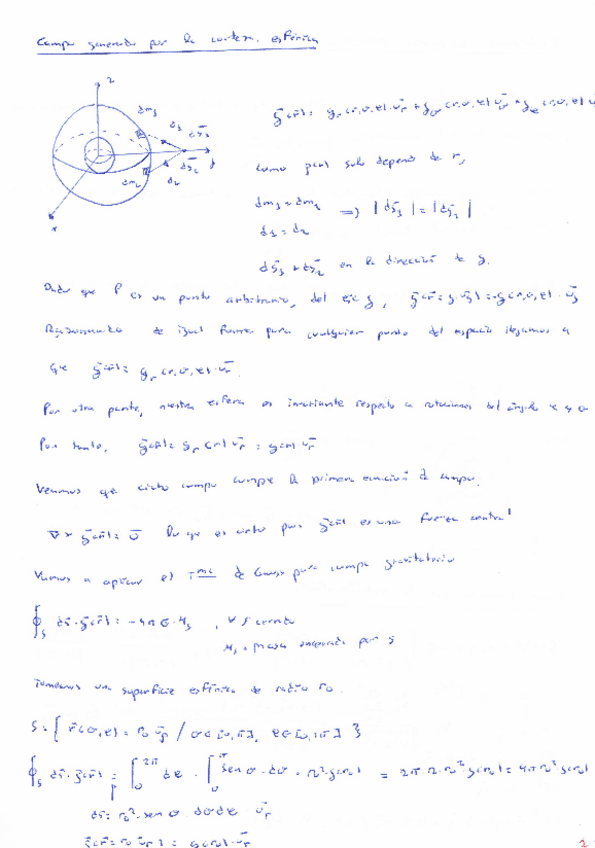 Campo generado por la corteza esférica
z
dm₁
d₁
dg̅₁
y
dg̅₂
d₂
dm₂
x
g̅(r̅) = g_r(r,θ,φ)·u̅_r + g_θ(r,θ,φ)·u̅_θ + g_φ(r,θ,φ)
como solo depende de r,
dm₁ = dm₂
d₁ = d₂
=> |dg̅₁| = |dg̅₂|
dg̅₁ + dg̅₂ en la dirección de y.
Dado que P es un punto arbitrario, del eje y,
Razonando de igual forma para cualquier punto del espacio llegamos a
que g̅(r̅) = g_r(r,θ,φ)·u̅_r.
Por otra parte, nuestra esfera es invariante respecto a rotaciones del ángulo φ y θ
Por tanto, g̅(r̅) = g_r(r)·u̅_r = g(r)·u̅_r
Veamos que dicho campo cumple la primera ecuación de campo.
∇×g̅(r̅) = 0̅ que es cierto pues g̅(r̅) es una fuerza central
Vamos a aplicar el Tma de Gauss para campo gravitatorio
∮_S ds̅·g̅(r̅) = -4πG·M_S , ∀ S cerrada
M_S = Masa encerrada por S
Tomamos una superficie esférica de radio r₀.
S = { r̅(θ,φ) = r₀ u̅_r / θ∈[0,π], φ∈[0,2π] }
∮_S ds̅·g̅(r̅) = ∫₀^2π dφ · ∫₀^π sen θ · dθ · r₀² g(r₀) = 2π·2·r₀² g(r₀) = 4πr₀² g(r₀)
ds̅ = r₀²·sen θ dθdφ · u̅_r
g̅(r̅ = r₀ u̅_r) = g(r₀)·u̅_r